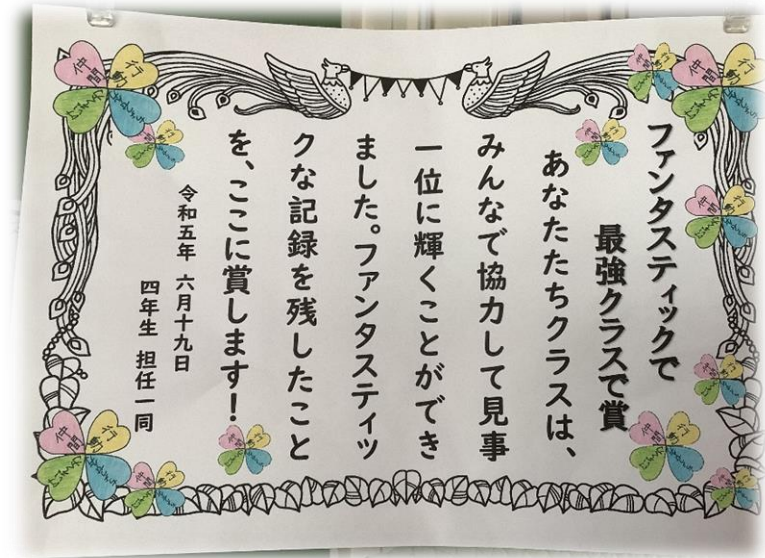 ファンタスティックで
最強クラスで賞
あなたたちクラスは、
みんなで協力して見事
一位に輝くことができ
ました。ファンタスティッ
クな記録を残したこと
を、ここに賞します!
令和五年 六月十九日
四年生 担任一同
仲間
行動
仲間
行動
仲間
行動
仲間
行動